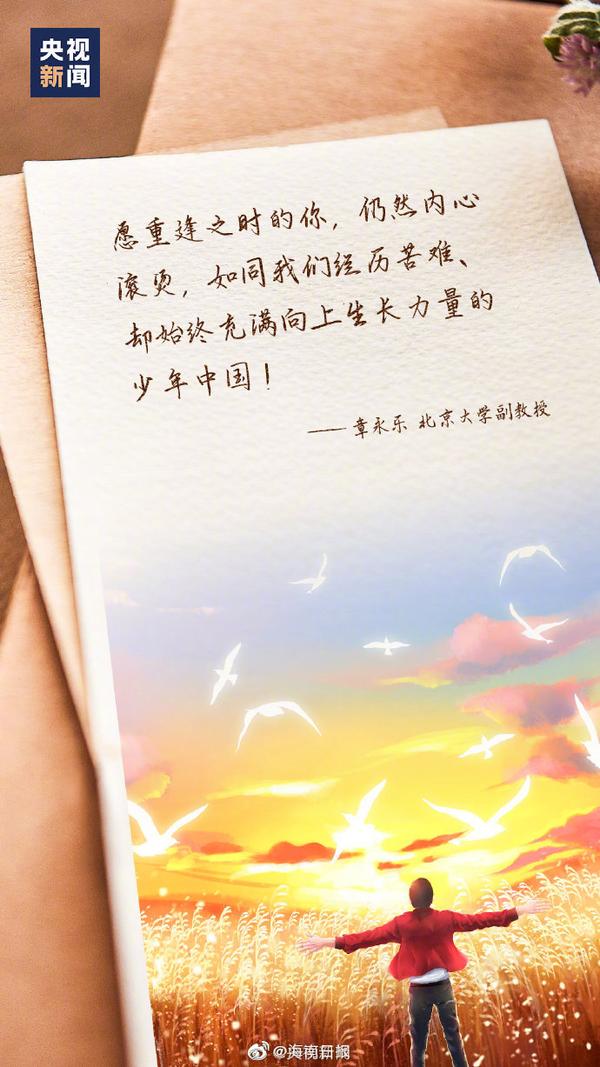 央视
新闻
愿重逢之时的你，仍然内心
滚烫，如同我们经历苦难、
却始终充满向上生长力量的
少年中国！
——章永乐 北京大学副教授
@海南日报